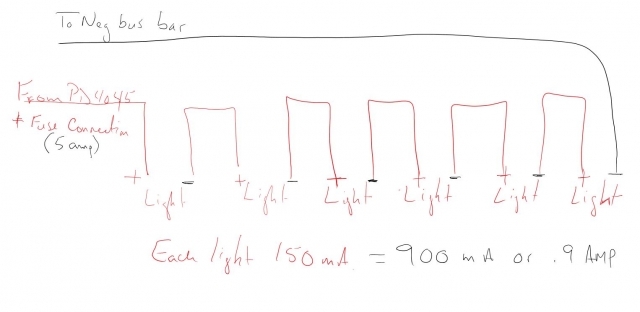 To Neg bus bar
From PD4045
* Fuse Connection
(5 amp)
+ Light - + Light - + Light - + Light - + Light - + Light -
Each light 150 mA = 900 mA or .9 AMP